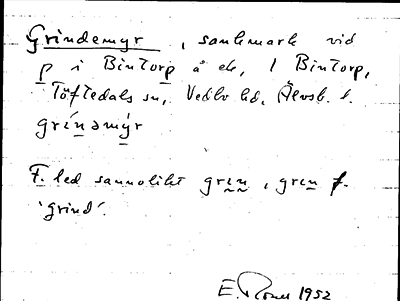 Grindemyr, sankmark vid
p i Bintorp å ek, 1 Bintorp,
Töftedals sn, Vedbo hd, Älvsb. l.
grínəmýr
F. led sannolikt grın, grın f.
'grind'.
E. 1952